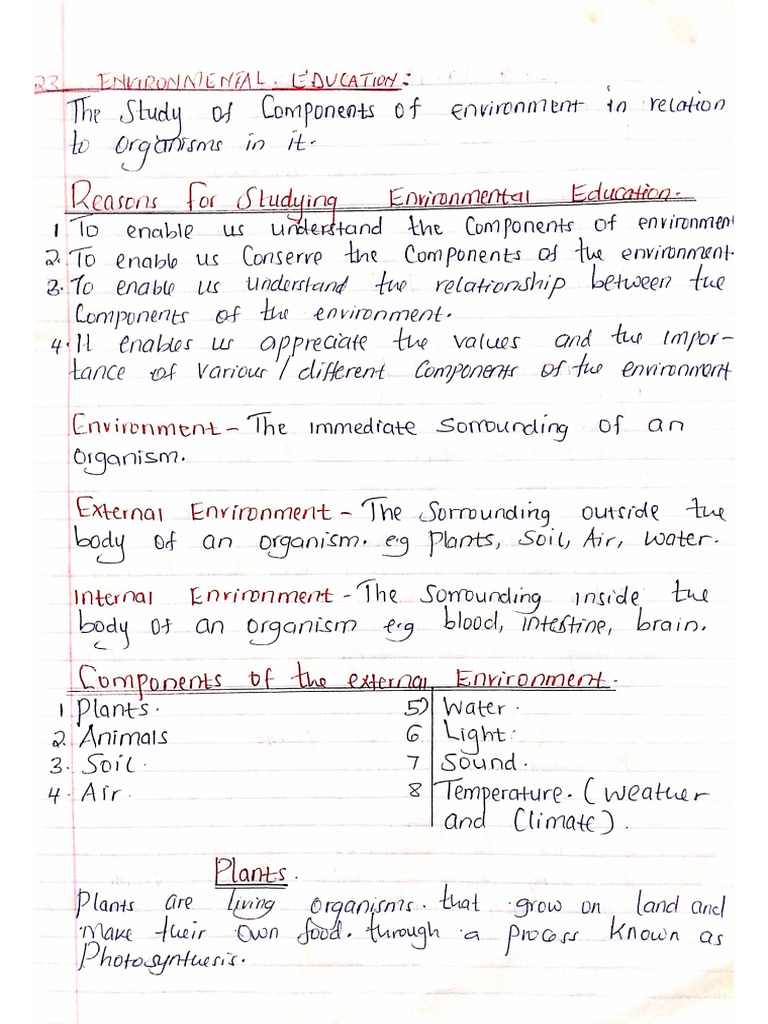 23 ENVIRONMENTAL EDUCATION:
The Study of Components of environment in relation
to organisms in it.
Reasons for Studying Environmental Education.
1 To enable us understand the Components of environment
2. To enable us Conserve the Components of the environment.
3. To enable us understand the relationship between the
Components of the environment.
4. It enables us appreciate the values and the impor-
tance of various / different Components of the environment
Environment - The immediate sorrounding of an
organism.
External Environment - The Sorrounding outside the
body of an organism. e.g Plants, Soil, Air, Water.
Internal Environment - The Sorrounding inside the
body of an organism e.g blood, intestine, brain.
Components of the external Environment.
1 Plants. 5) Water.
2. Animals 6 Light.
3. Soil. 7 Sound.
4. Air. 8 Temperature. (Weather
and Climate).
Plants.
Plants are living organisms. that grow on land and
make their own food. through a process known as
Photosynthesis.